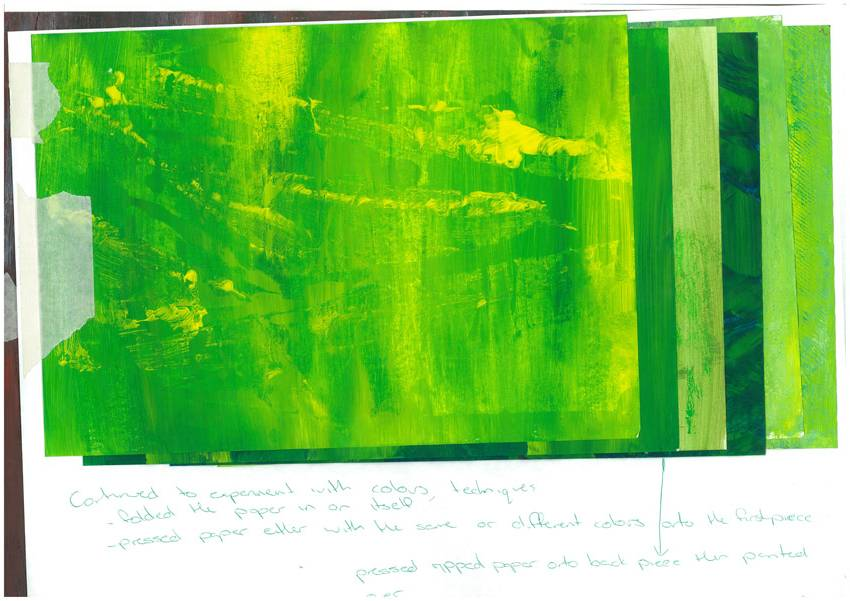 Continued to experiment with colours, techniques
- folded the paper in on itself
- pressed paper either with the same or different colors onto the first piece
pressed ripped paper onto back piece then painted
over